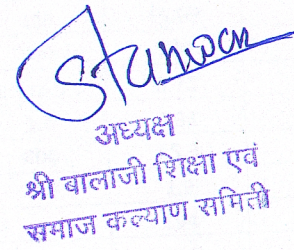 अध्यक्ष
श्री बालाजी शिक्षा एवं
समाज कल्याण समिती